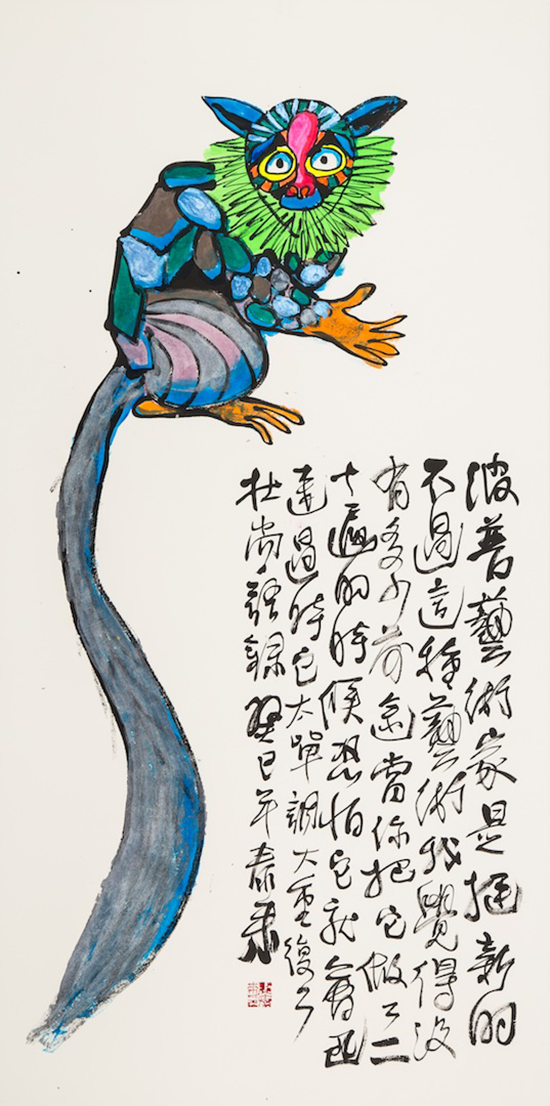 波普藝術家是挺新的
不過這種藝術我覺得沒
有多少前途當你把它做了二
十遍的時候恐怕它就會迅
速過時它太單調太重復了
杜尚語錄 癸巳年